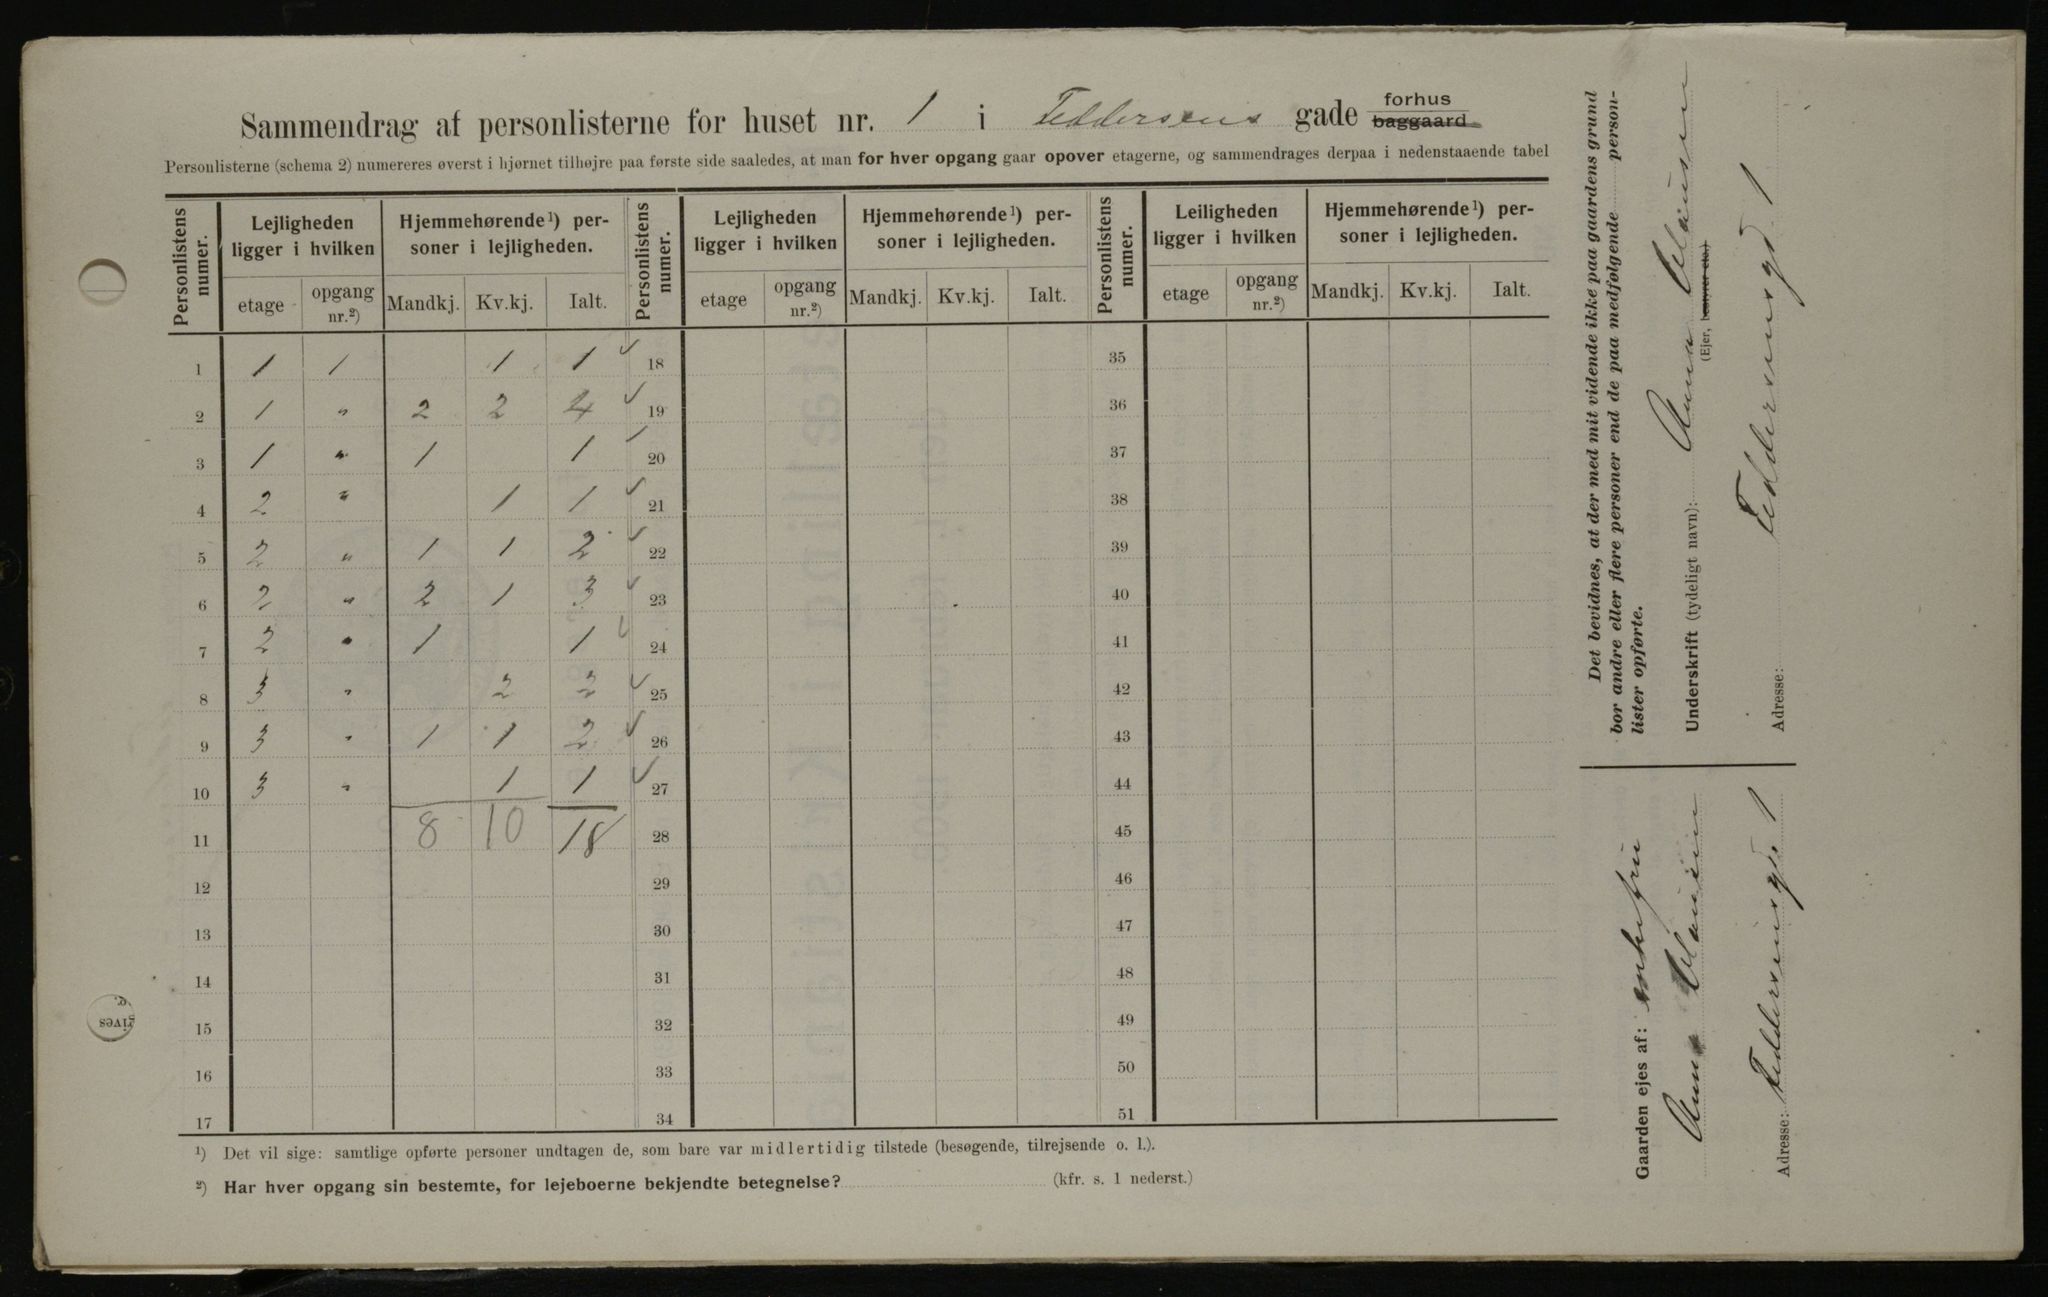 Sammendrag af personlisterne for huset nr. 1 i Feddersens gade forhus baggaard
Personlisterne (schema 2) numereres øverst i hjørnet tilhøjre paa første side saaledes, at man for hver opgang gaar opover etagerne, og sammendrages derpaa i nedenstaaende tabel
Personlistens numer. Lejligheden ligger i hvilken Hjemmehørende¹) personer i lejligheden. Personlistens numer. Lejligheden ligger i hvilken Hjemmehørende¹) personer i lejligheden. Personlistens numer. Leiligheden ligger i hvilken Hjemmehørende¹) personer i lejligheden.
etage opgang nr.²) Mandkj. Kv.kj. Ialt. etage opgang nr.²) Mandkj. Kv.kj. Ialt. etage opgang nr.²) Mandkj. Kv.kj. Ialt.
1 1 1 1 1 ✓ 18 35
2 1 " 2 2 4 ✓ 19 36
3 1 " 1 1 ✓ 20 37
4 2 " 1 1 ✓ 21 38
5 2 " 1 1 2 ✓ 22 39
6 2 " 2 1 3 ✓ 23 40
7 2 " 1 1 ✓ 24 41
8 3 " 2 2 ✓ 25 42
9 3 " 1 1 2 ✓ 26 43
10 3 " 1 1 ✓ 27 44
11 8 10 18 28 45
12 29 46
13 30 47
14 31 48
15 32 49
16 33 50
17 34 51
¹) Det vil sige: samtlige opførte personer undtagen de, som bare var midlertidig tilstede (besøgende, tilrejsende o. l.).
²) Har hver opgang sin bestemte, for lejeboerne bekjendte betegnelse? (kfr. s. 1 nederst.)
Det bevidnes, at der med mit vidende ikke paa gaardens grund
bor andre eller flere personer end de paa medfølgende person-
lister opførte.
Underskrift (tydeligt navn): Anna
(Ejer, bestyrer etc.)
Adresse: Feddersensgd 1
Gaarden ejes af: enkefru
Anna
Adresse: Feddersensgd. 1
gives